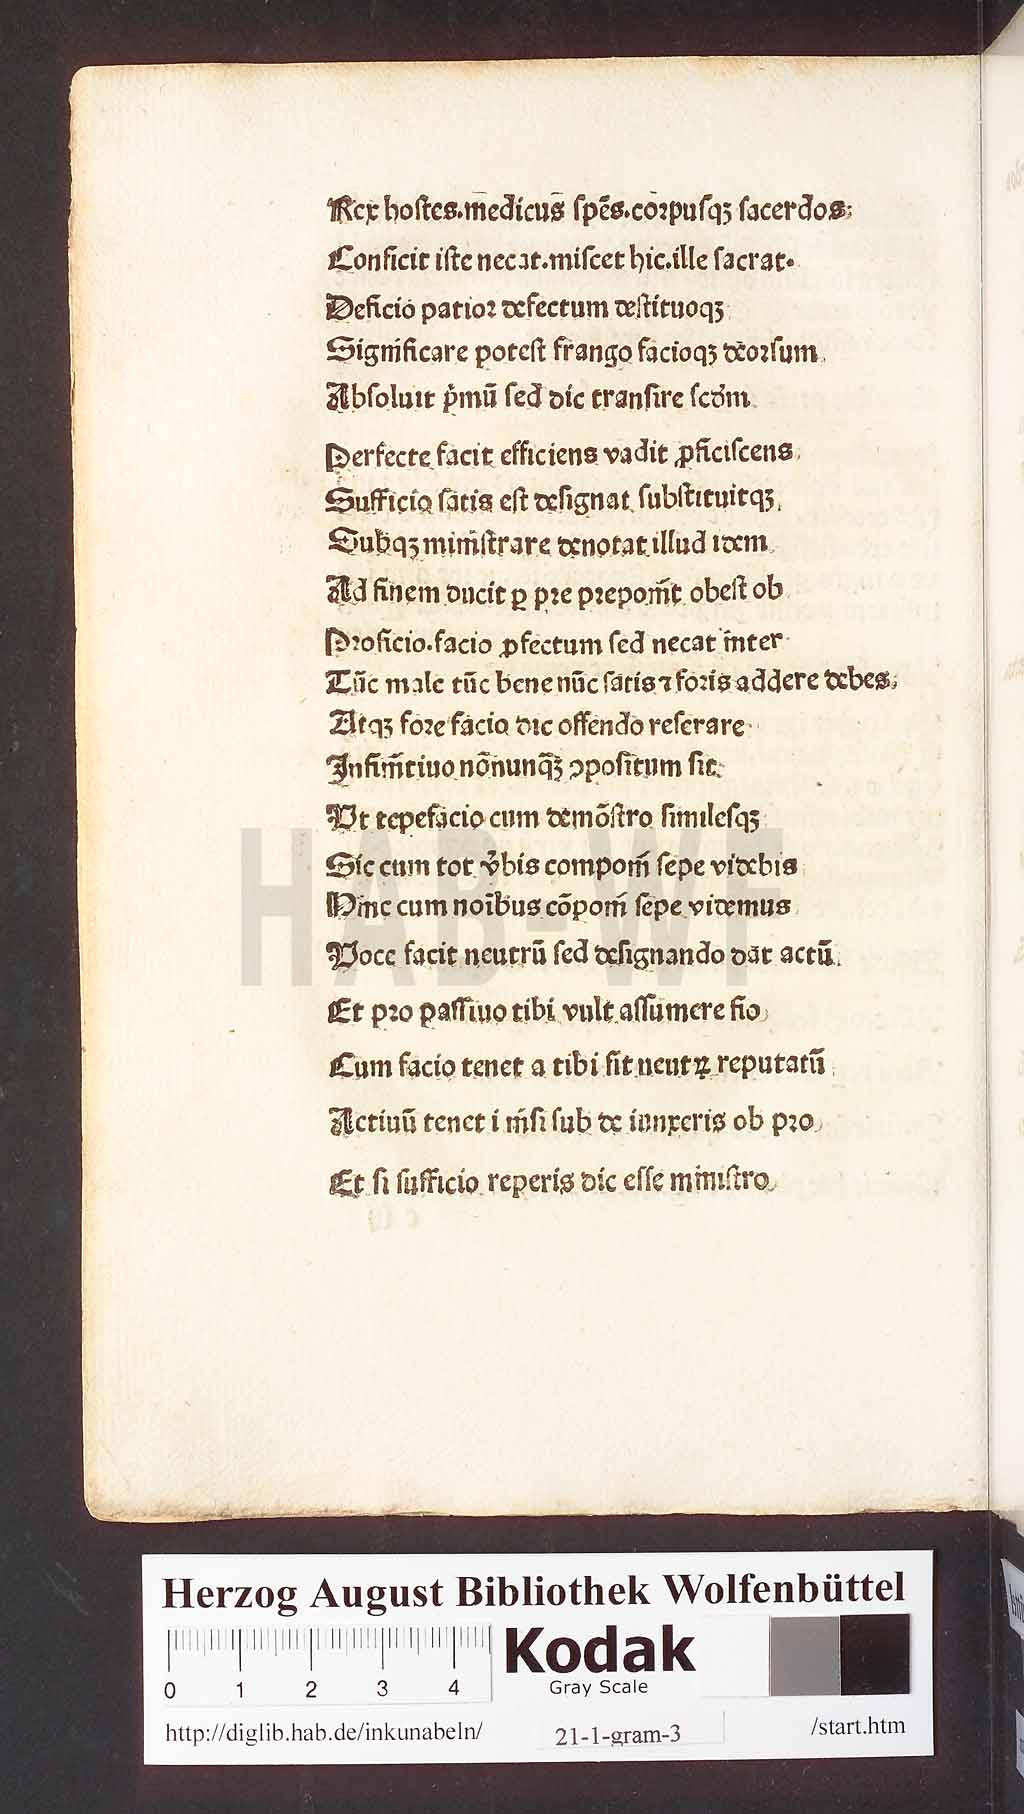 Rex hostes.medicus̄ sp̄es.corpusqꝫ sacerdos:
Conficit iste necat.miscet hic.ille sacrat.
Deficio patior defectum destituoqꝫ
Significare potest frango facioqꝫ deorsum.
Absoluit p̓mū sed dic transire scd̓m
Perfecte facit efficiens vadit ꝓficiscens.
Sufficio satis est designat substituitqꝫ.
Subqꝫ minīstrare denotat illud idem.
Ad finem ducit ꝑ pre prepoīt obest ob
Proficio.facio ꝓfectum sed necat inter
Tūc male tūc bene nūc satis ⁊ foris addere debes.
Atqꝫ fore facio dic offendo reserare
Infinītiuo nōnunq̄ꝫ ꝯpositum sit.
Vt tepefacio cum demōstro similesqꝫ
Sic cum tot v̓bis componī sepe videbis
Hinc cum noībus cōponī sepe videmus
Voce facit neutrū sed designando dat actū.
Et pro passiuo tibi vult assumere fio
Cum facio tenet a tibi sit neutꝝ reputatū
Actiuū tenet i nīsi sub de iunxeris ob pro
Et si sufficio reperis dic esse ministro
HAB-WF
Herzog August Bibliothek Wolfenbüttel
0 1 2 3 4
Kodak
Gray Scale
http://diglib.hab.de/inkunabeln/ 21-1-gram-3 /start.htm